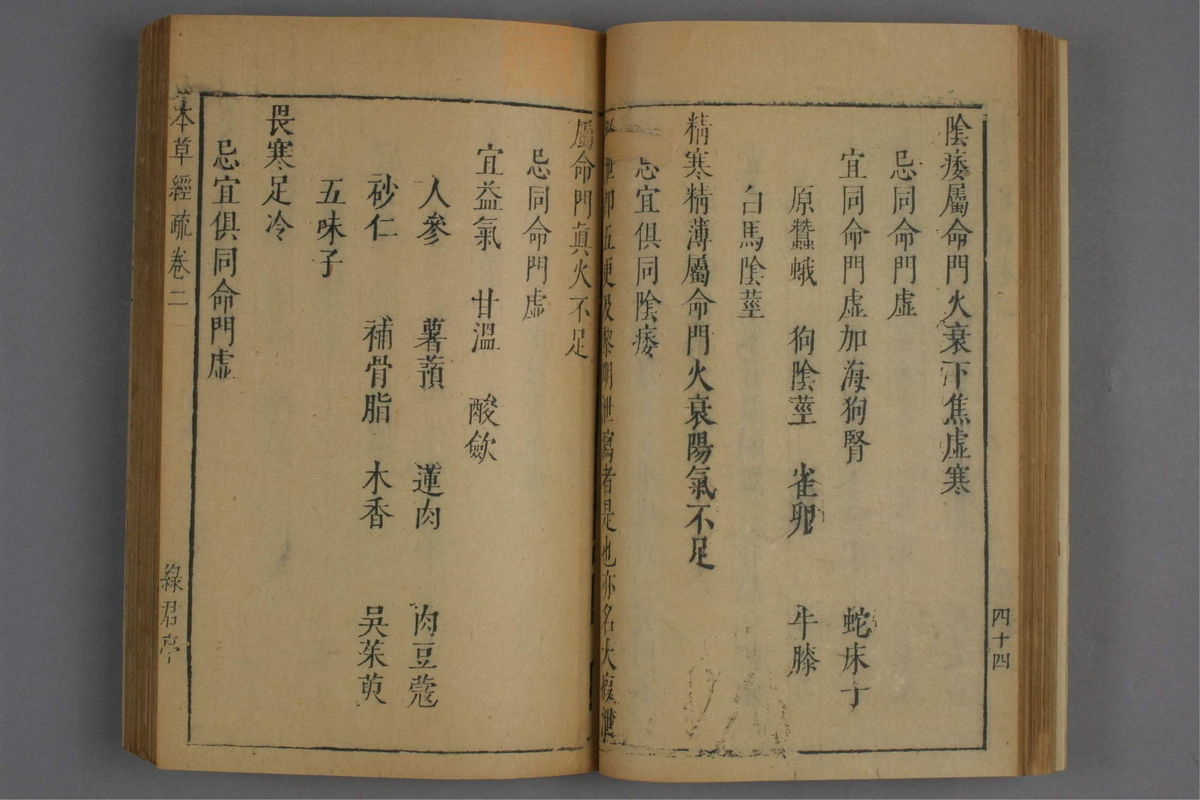 陰痿屬命門火衰下焦虛寒
忌同命門虛
宜同命門虛加海狗腎 蛇床子
原蠶蛾 狗陰莖 雀卵 牛膝
白馬陰莖
精寒精薄屬命門火衰陽氣不足
忌宜俱同陰痿
泄卽五更及黎明泄瀉者是也亦名大瘕泄
屬命門眞火不足
忌同命門虛
宜益氣 甘溫 酸斂
人參 薯蕷 蓮肉 肉豆蔻
砂仁 補骨脂 木香 吳茱萸
五味子
畏寒足冷
忌宜俱同命門虛
本草經疏卷二
綠君亭
四十四